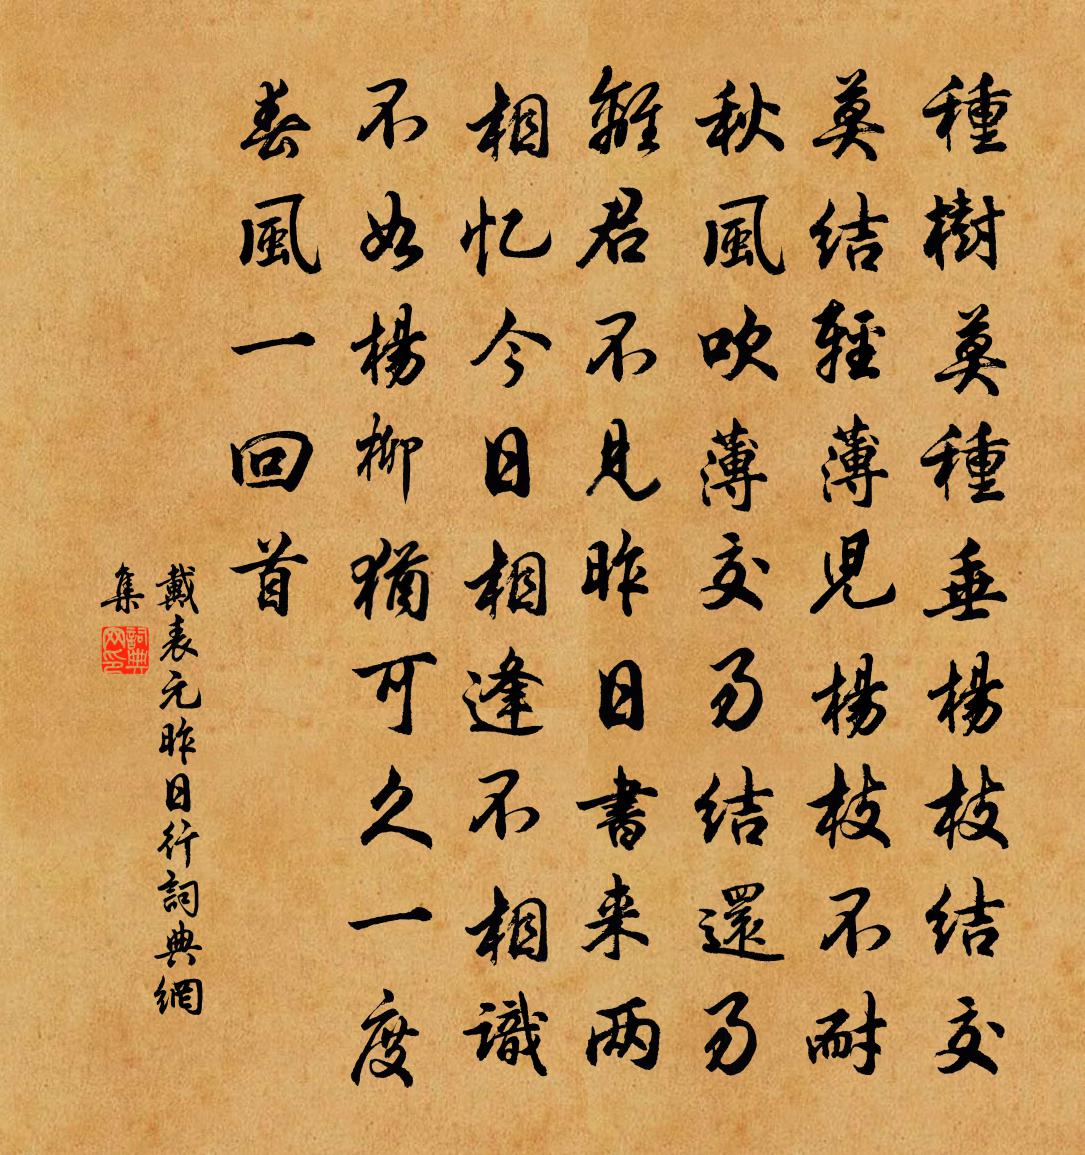 種樹莫種垂楊枝結交
莫結輕薄兒楊枝不耐
秋風吹薄交易結還易
離君不見昨日書来两
相忆今日相逢不相識
不如楊柳猶可久一度
春風一回首
戴表元昨日行詞典網
集
詞典网印